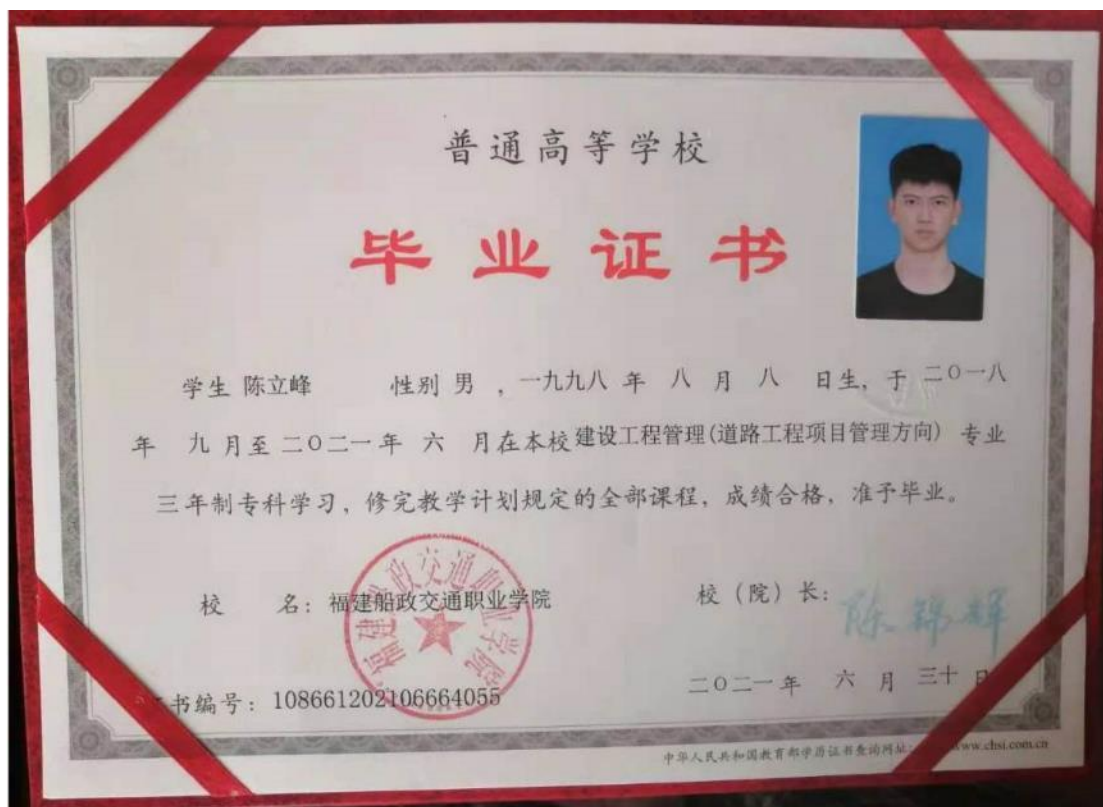 普通高等学校
毕业证书
学生 陈立峰 性别 男 ，一九九八 年 八 月 八 日生，于 二〇一八
年 九 月至 二〇二一 年 六 月在本校 建设工程管理(道路工程项目管理方向) 专业
三年制专科学习，修完教学计划规定的全部课程，成绩合格，准予毕业。
校 名：福建船政交通职业学院
福建船政交通职业学院
校（院）长：
陈锦辉
书编号：108661202106664055
二〇二一 年 六 月 三十 日
中华人民共和国教育部学历证书查询网址：www.chsi.com.cn